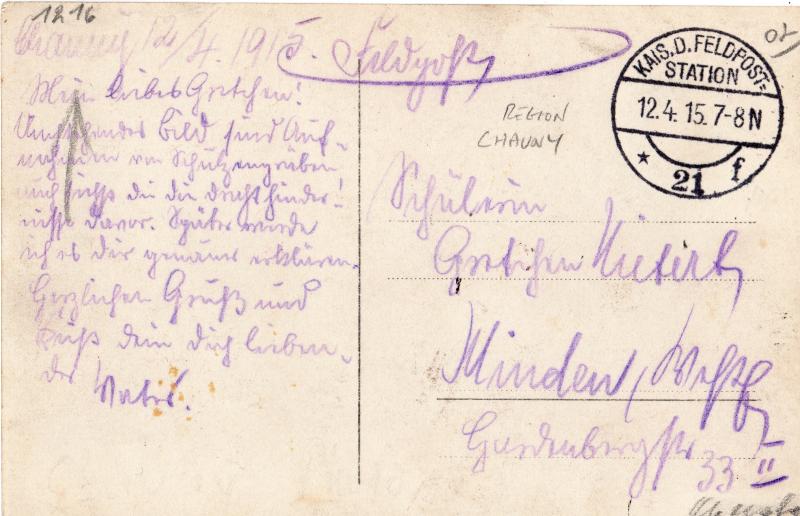 1216
Chauny 12/4. 1915.
Feldpost
Mein liebes Gretchen!
Umstehendes Bild sind Auf-
nahmen von Schützengräben
siehst du die Drahthinder-
nisse davor. Später werde
ich es dir genauer erklären.
Herzlichen Gruß und
Kuß dein dich lieben-
der Vater.
REGION
CHAUNY
KAIS. D. FELDPOST=
STATION
12.4.15.7-8N
* 21 f
Schülerin
Gretchen
Minden, Westf.
Hardenbergstr
33 II